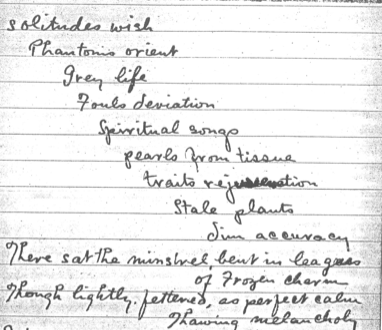 solitudes wish
Phantoms orient
Grey life
Fouls deviation
Spiritual songs
pearls from tissue
traits
Stale plants
Dim accuracy
There sat the minstrel bent in leagues
of Frozen charm
Though lightly fettered, as perfect calm
Thawing melancholy